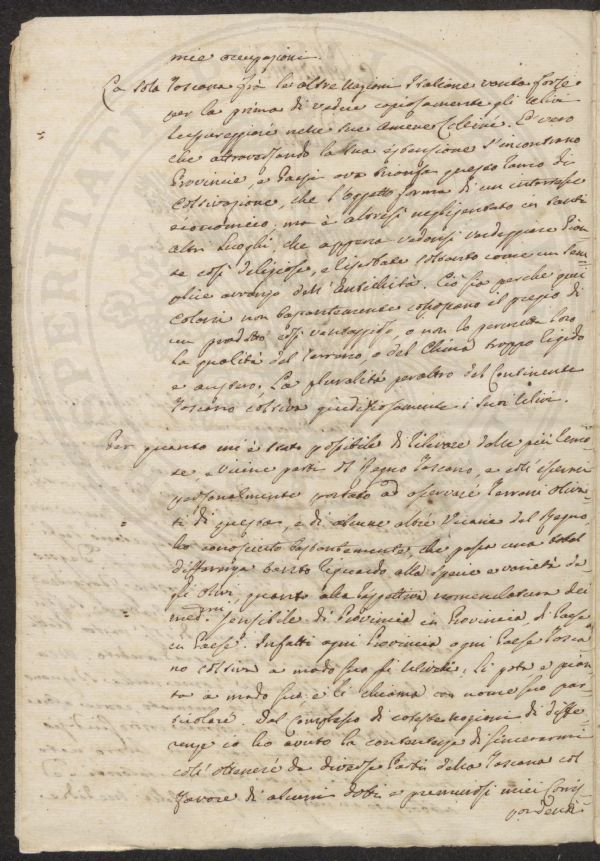 mie occupazioni.
La sola Toscana frà le altre Nazioni Italiane vanta forse
per la prima di vedere copiosamente gli Ulivi
lussureggiare nelle sue amene Colline. È vero
che attraversando la sua estensione s'incontrano
Provincie, e Paesi ove trionfa questo ramo di
Coltivazione, che l'oggetto forma di un interesse
economico; ma è altresì negligentato in tanti
altri luoghi, che appena vedonsi verdeggiare Pian=
te così deliziose, e riserbate soltanto come un sem=
plice avanzo dell'Antichità. Ciò sia perché quei
Coloni non bastantemente conoscano il pregio di
un prodotto così vantaggioso, o non lo permetta loro
la qualità del Terreno, o del Clima troppo rigido
e austero. La pluralità peraltro del Continente
Toscano coltiva giudiziosamente i suoi Ulivi.
Per quanto mi è stato possibile di rilevare dalle più remo=
te, e vicine parti del Regno Toscano, e coll'essermi
personalmente portato ad osservare Terreni oliva=
ti di questa, e di alcune altre Vicarie del Regno,
ho conosciuto bastantemente, che passa una total
differenza tanto riguardo alla specie e varietà de=
gli olivi, quanto alla rispettiva nomenclatura dei
med.mi sensibile di Provincia in Provincia, di Paese
in Paese. Infatti ogni Provincia ogni Paese Tosca
no coltiva a modo suo gli Ulivi, li pota e pian=
ta a modo suo, e li chiama con nome suo par=
ticolare. Dal complesso di coteste nozioni di diffe
renze io ho avuto la contentezza di sincerarmi
coll'ottenere da diverse Parti della Toscana col
favore di alcuni dotti e premurosi miei Corris=
pondenti